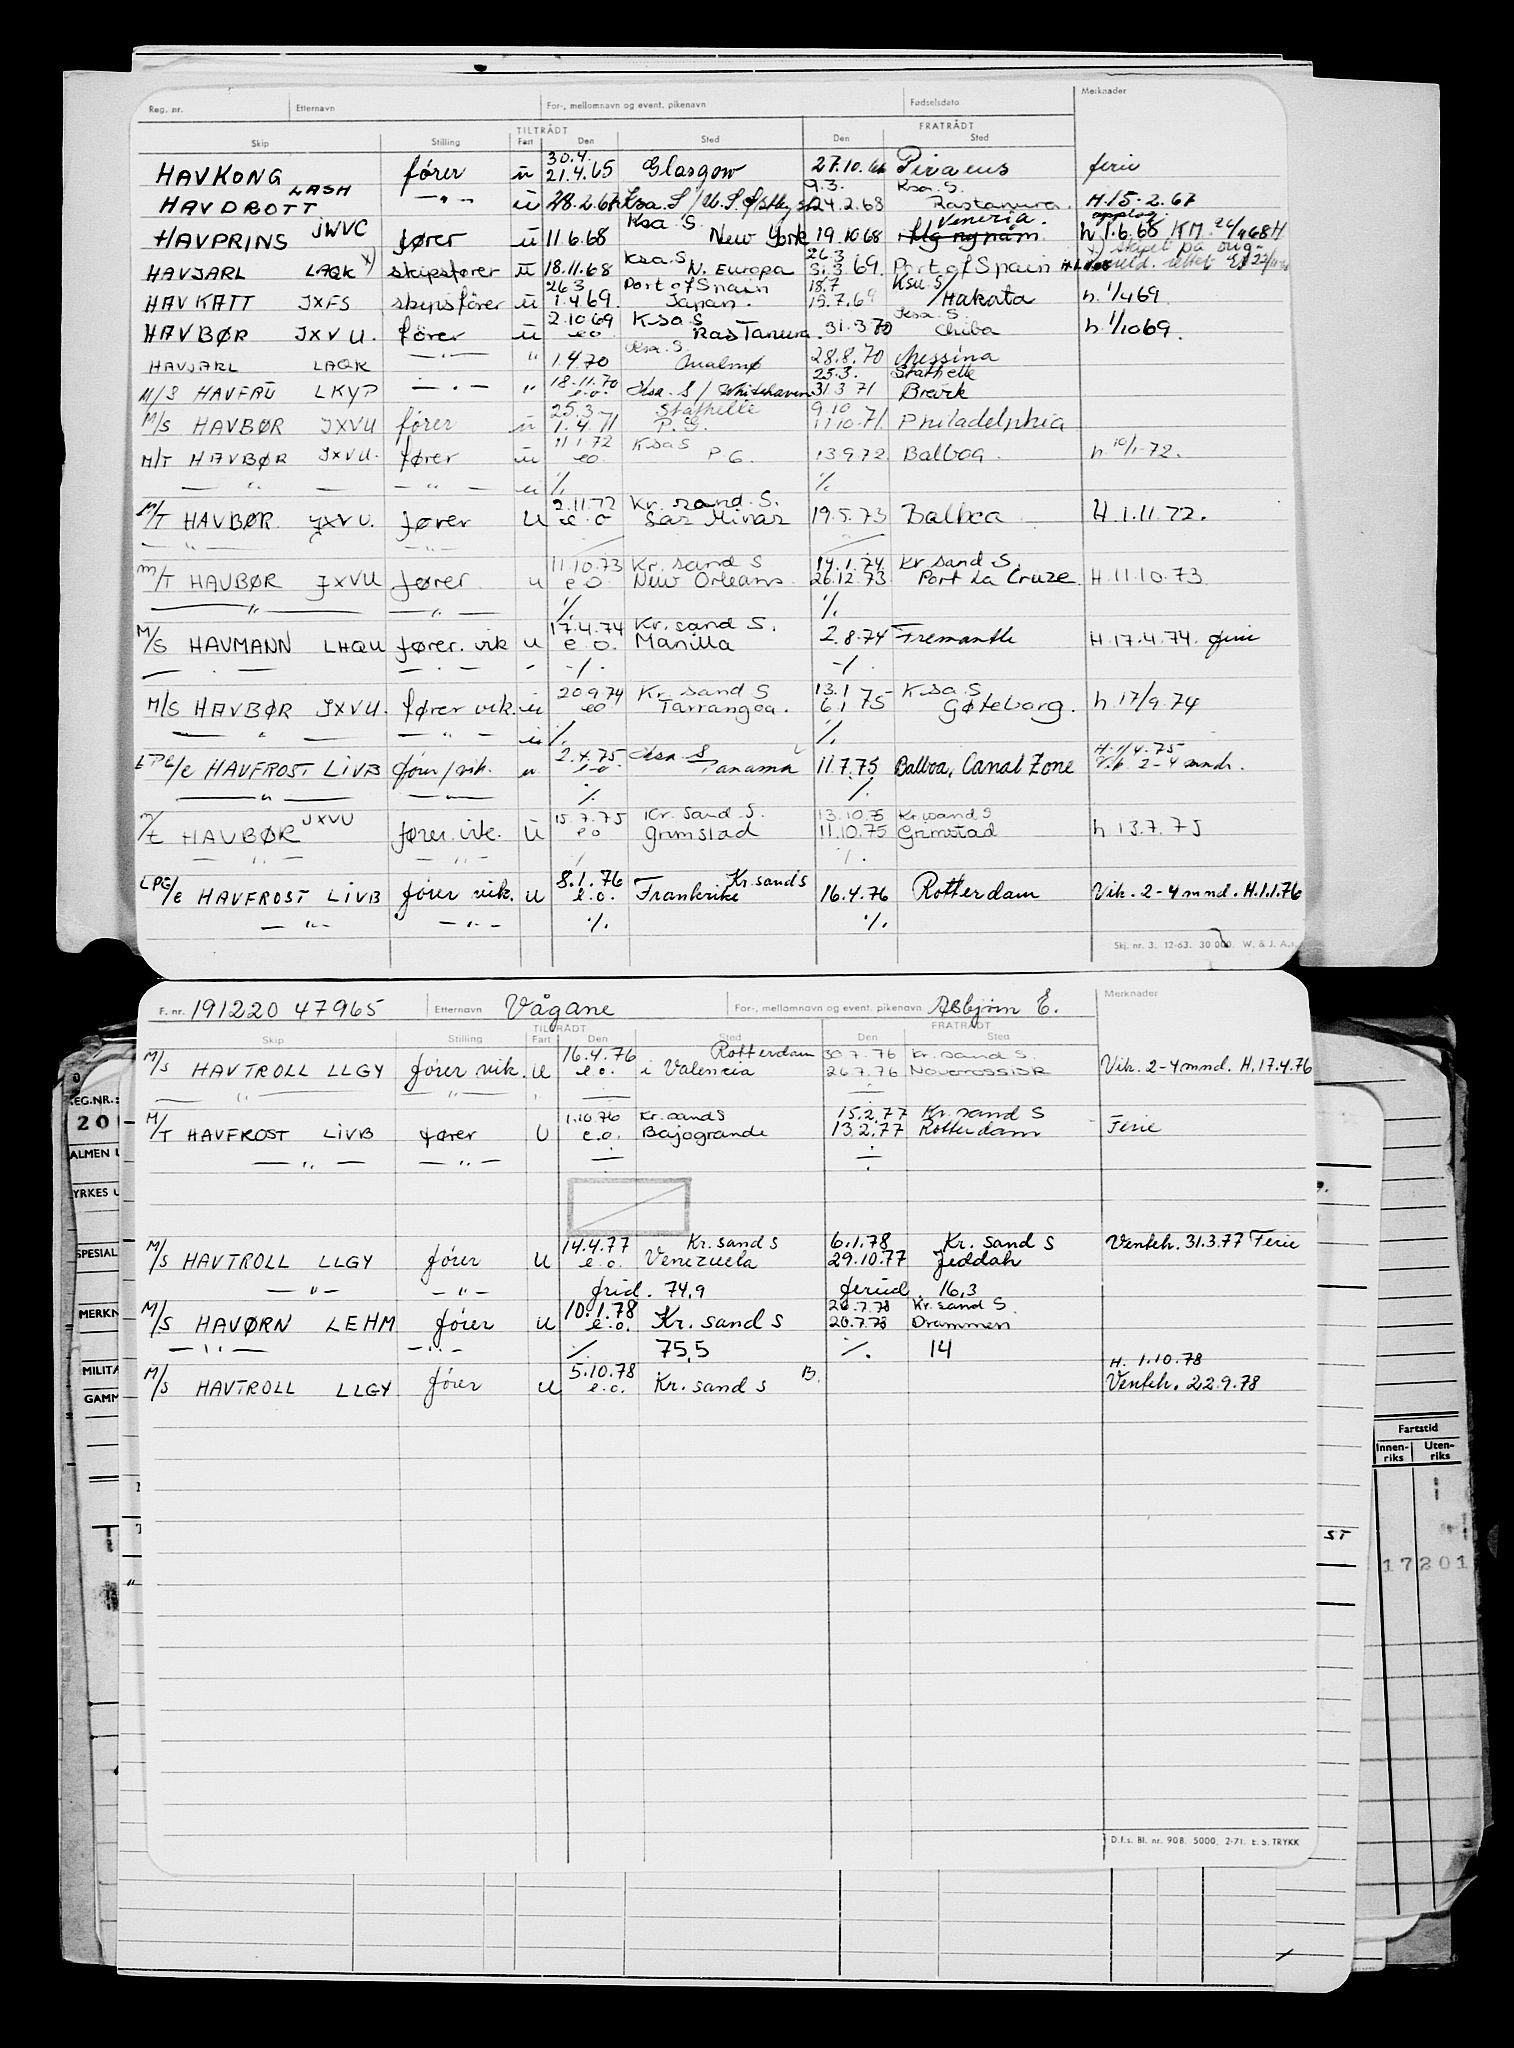 Reg. nr. Etternavn For-, mellomnavn og event. pikenavn Fødselsdato Merknader
TILTRÅDT FRATRÅDT
Skip Stilling Fart Den Sted Den Sted
30.4.
HAVKONG fører u 21.4.65 Glasgow 27.10.66 Piraeus ferie
LASH 9.3. Ksa. S.
HAVDROTT — " — u 28.2.67 Ksa. S / 24.2.68 Rastanura. H. 15.2.67
JWVC Ksa. S. Veneria.
HAVPRINS fører u 11.6.68 New York 19.10.68 h 1.6.68 KM
Ksa. S 26.3
HAVJARL LAQK x) skipsfører u 18.11.68 N. Europa 31.3.69. Port of Spain
26.3 Port of Spain 18.7 Ksa. S/
HAVKATT JXFS skipsfører u 1.4.69. Japan. 15.7.69 Hakata h. 1/4 69.
2.10.69 Ksa S Ksa. S.
HAVBØR JXVU. fører u eo RasTanura. 31.3.70 Chiba h 1/10 69.
Ksa. S
HAVJARL LAQK — " — " 1.4.70 28.8.70 Messina
18.11.70 25.3. Stathelle
M/S HAVFRU LKYP — " — " e.o. Ksa. S / Whitehaven 31.3.71 Brevik
25.3. Stathelle 9.10
M/S HAVBØR JXVU fører u 1.4.71 P.G. 11.10.71. Philadelphia
11.1.72 Ksa S
M/T HAVBØR JXVU. fører u eo P.G. 13.9.72 Balboa. h 10/1-72.
— " — — " — u % %
2.11.72 Kr. sand. S.
M/T HAVBØR JXVU. fører u e.o 19.5.73 Balboa H. 1.11.72.
— " — — " —
11.10.73 Kr. sand S 14.1.74 Kr sand S.
M/T HAVBØR JXVU fører u e.o. New Orleans 26.12.73 Port La Cruze H. 11.10.73.
— " — — " — % %
17.4.74 Kr. sand S.
M/S HAVMANN LHQU fører. vik u e.o. Manilla 2.8.74 Fremantle H. 17.4.74. ferie
— . — — . — - % %
20.9.74 Kr. sand S 13.1 Ksa S
M/S HAVBØR JXVU. fører vik. u eo Tarrangoa. 6.1.75 Gøteborg. h 17/9.74
— " — — " — u % %
2.4.75 Ksa S H. 1/4.75
LPG/c HAVFROST LIVB fører/vik. u e.o. Panama 11.7.75 Balboa, Canal Zone Vik 2-4 mndr.
— " — — " — % %
15.7.75 Kr. Sand. S. 13.10.75 Kr. sand S
M/t HAVBØR JXVU fører. vik. u eo Grimstad 11.10.75 Grimstad h 13.7.75
— " — — " — % %
8.1.76 Kr. sand S
LPG/c HAVFROST LIVB fører vik. u e.o. Frankrike 16.4.76 Rotterdam Vik. 2-4 mnd. H.1.1.76
— " — — " — % %
Skj. nr. 3. 12-63. 30 000. W. & J. A.s.
F. nr. 191220 47965 Etternavn Vågane For-, mellomnavn og event. pikenavn Asbjørn E. Merknader
TILTRÅDT FRATRÅDT
Skip Stilling Fart Den Sted Den Sted
16.4.76 Rotterdam 30.7.76 Kr. sand S.
M/S HAVTROLL LLGY fører vik. u e.o. i Valencia 26.7.76 Novorossisk Vik. 2-4 mnd. H. 17.4.76
— " — — " — "
1.10.76 Kr. sand S 15.2.77 Kr. sand S
M/T HAVFROST LIVB fører U e.o. Bajogrande 13.2.77 Rotterdam Ferie
— " — — " —
14.4.77 Kr. sand S 6.1.78 Kr. sand S Venteh. 31.3.77 Ferie
M/S HAVTROLL LLGY fører u e.o. Venezuela 29.10.77 Jeddah
— " — — " — frid. 74,9 feried. 16,3
10.1.78 26.7.78 Kr. sand S.
M/S HAVØRN LEHM fører u e.o. Kr. sand S 20.7.78 Drammen
— " — — " — % 75,5 % 14
5.10.78 B. H. 1.10.78
M/S HAVTROLL LLGY fører u e.o. Kr. sand S Venteh. 22.9.78
D.f.s. Bl. nr. 908. 5000. 2-71. E.S. TRYKK
REG.NR.:
ALMEN
YRKES U
SPESIAL
MERKN
MILITÆ
GAMM
Fartstid
Innen-riks Uten-riks
ST
17201